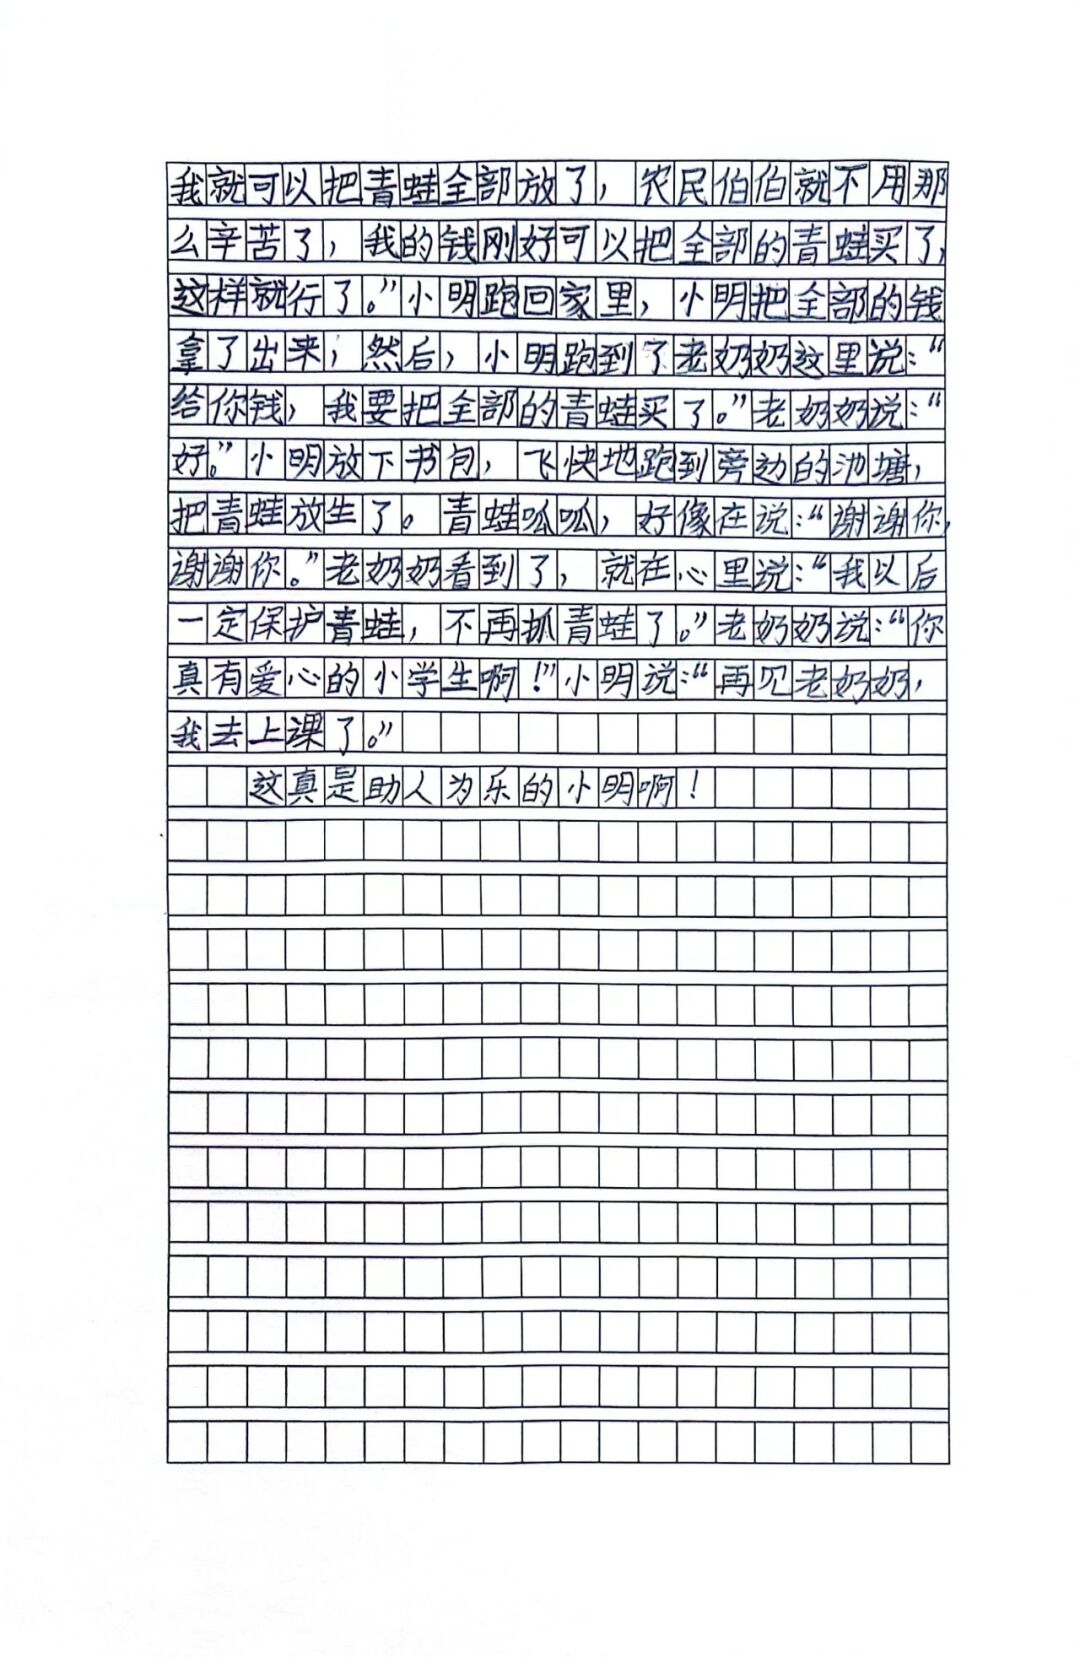 我就可以把青蛙全部放了，农民伯伯就不用那
么辛苦了，我的钱刚好可以把全部的青蛙买了，
这样就行了。”小明跑回家里，小明把全部的钱
拿了出来，然后，小明跑到了老奶奶这里说：“
给你钱，我要把全部的青蛙买了。”老奶奶说：“
好。”小明放下书包，飞快地跑到旁边的池塘，
把青蛙放生了。青蛙呱呱，好像在说：“谢谢你，
谢谢你。”老奶奶看到了，就在心里说：“我以后
一定保护青蛙，不再抓青蛙了。”老奶奶说：“你
真有爱心的小学生啊！”小明说：“再见老奶奶，
我去上课了。”
这真是助人为乐的小明啊！